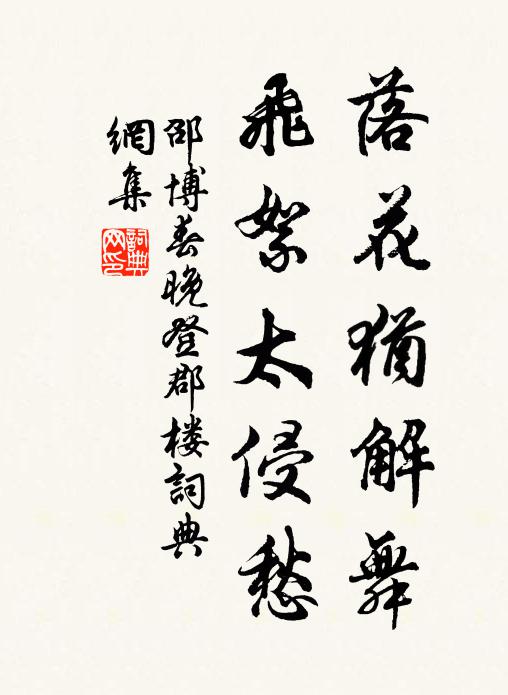 落花猶解舞
飛絮太侵愁
邵博春晚登郡楼詞典
網集
詞典
网印